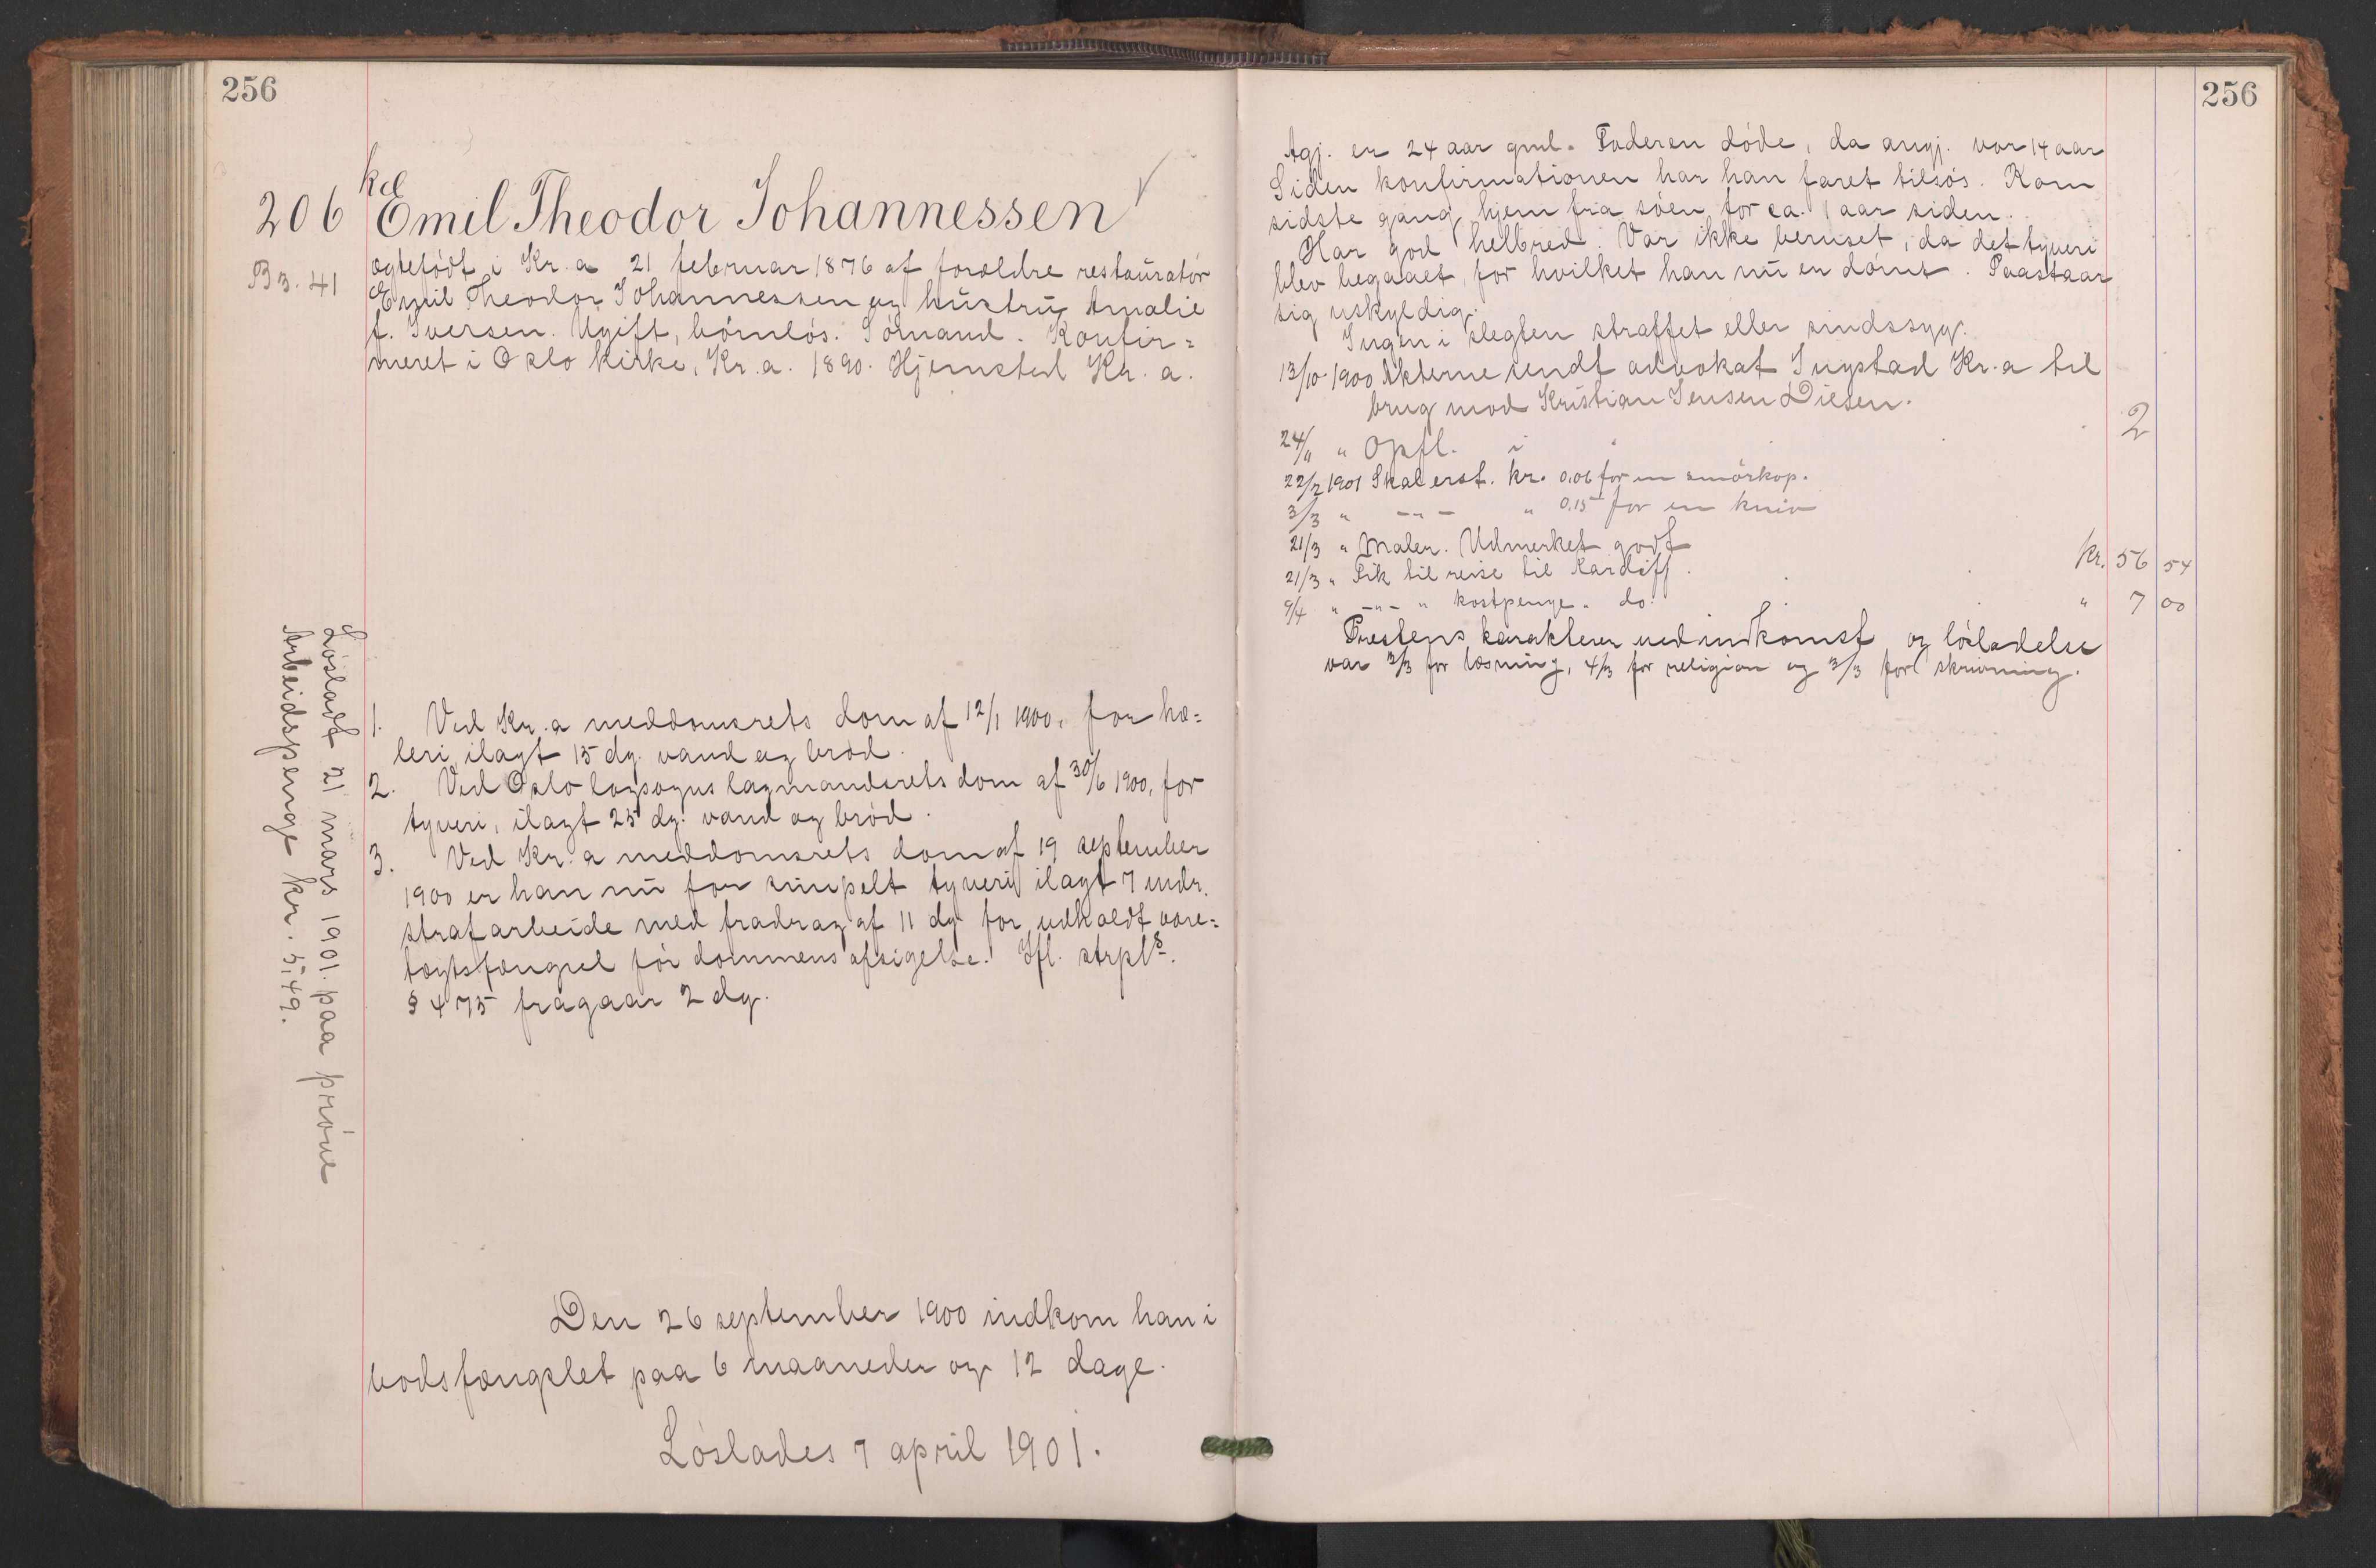 256
206
B 3. 41
kd
Emil Theodor Johannessen
ægtefødt i Kr.a 21 februar 1876 af forældre restauratør
Emil Theodor Johannessen og hustru Amalie
f. Iversen. Ugift, børnløs. Sømand. Konfir=
meret i Oslo kirke, Kr.a. 1890. Hjemsted Kr.a.
Løsladt 21 mars 1901 paa prøve
Arbeidspenge kr. 5,49.
1. Ved Kr.a meddomsrets dom af 12/1 1900, for hæ=
leri, ilagt 15 dg. vand og brød.
2. Ved Oslo lagsogns lagmandsrets dom af 30/6 1900, for
tyveri, ilagt 25 dg. vand og brød.
3. Ved Kr.a meddomsrets dom af 19 september
1900 er han nu for simpelt tyveri ilagt 7 mdr.
strafarbeide med fradrag af 11 dg. for udholdt vare=
tægtsfængsel før dommens afsigelse. Ifl. strpls.
§ 475 fragaar 2 dg.
Den 26 september 1900 indkom han i
bodsfængslet paa 6 maaneder og 12 dage.
Løslades 7 april 1901.
256
Agj. er 24 aar gml. Faderen døde, da angj. var 14 aar
Siden konfirmationen har han faret tilsøs. Kom
sidste gang hjem fra søen for ca. 1 aar siden.
Har god helbred. Var ikke beruset, da det tyveri
blev begaaet, for hvilket han nu er dømt. Paastaar
sig uskyldig.
Ingen i slegten straffet eller sindssyg.
13/10 1900 Akterne sendt advokat Ingstad Kr.a til
brug mod Kristian Jensen Diesen.
24/11 " Opfl. i 2
22/2 1901 Skal erst. kr. 0,06 for en smørkop.
3/3 " -"- " 0,15 for en kniv
21/3 " Maler. Udmerket godt
21/3 " Fik til reise til Kardiff. kr. 56 54
9/4 " -"- " kostpenge " do. " 7 00
Prestens karakterer ved indkomst og løsladelse
var 3/3 for læsning, 4/3 for religion og 3/3 for skrivning.